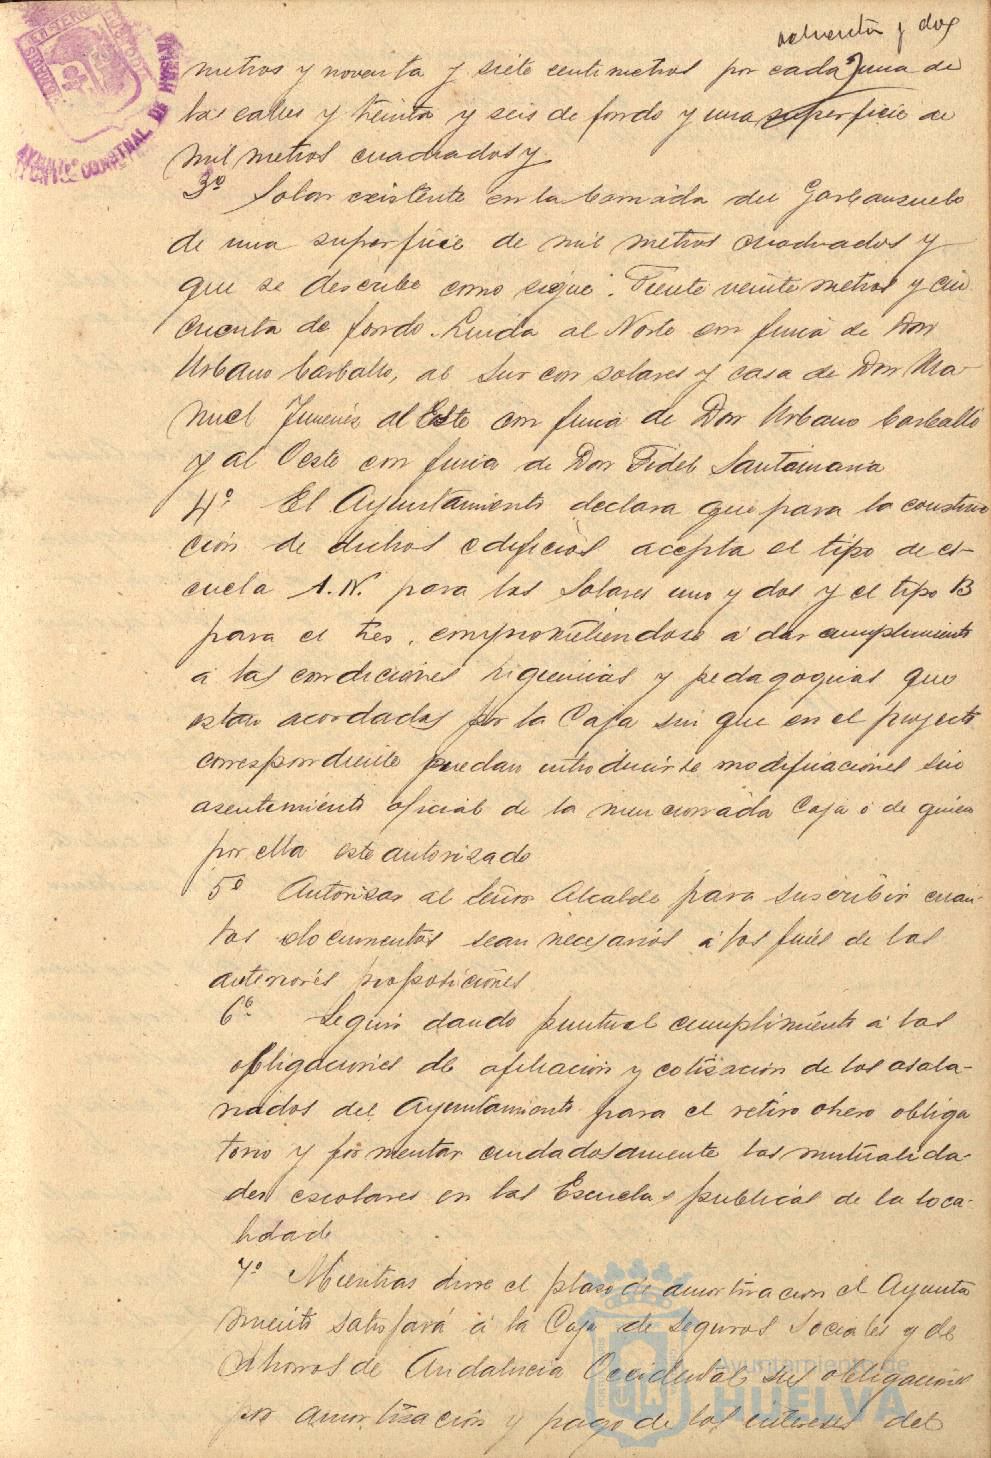 ochenta y dos
metros y noventa y siete centimetros por cada una de
las calles y treinta y seis de fondo y una superficie de
mil metros cuadrados y
3º Solar existente en la barriada del Garbanzuelo
de una superficie de mil metros cuadrados y
que se describe como sigue: Frente veinte metros y cin
cuenta de fondo. Linda al Norte con finca de Don
Urbano Carballo, al Sur con solares y casa de Don Ma-
nuel Jimenez al Este con finca de Don Urbano Carballo
y al Oeste con finca de Don Fidel Santamaria
4º El Ayuntamiento declara que para la construc
ción de dichos edificios acepta el tipo de es-
cuela A.N. para los Solares uno y dos y el tipo B
para el tres, comprometiendose a dar cumplimiento
a las condiciones higienicas y pedagogicas que
estan acordadas por la Caja sin que en el proyecto
correspondiente puedan introducirse modificaciones sin
asentimiento oficial de la mencionada Caja o de quien
por ella este autorizado
5º Autorizar al Señor Alcalde para suscribir cuan-
tos documentos sean necesarios a los fines de las
anteriores proposiciones
6º Seguir dando puntual cumplimiento a las
obligaciones de afiliación y cotización de los asala-
riados del Ayuntamiento para el retiro obrero obliga
torio y fomentar cuidadosamente las mutualida-
des escolares en las Escuelas publicas de la loca-
lidad
7º Mientras dure el plazo de amortizacion el Ayunta
miento satisfará a la Caja de Seguros Sociales y de
Ahorros de Andalucia Occidental sus obligaciones
por amortización y pago de los intereses del
Ayuntamiento de
HUELVA